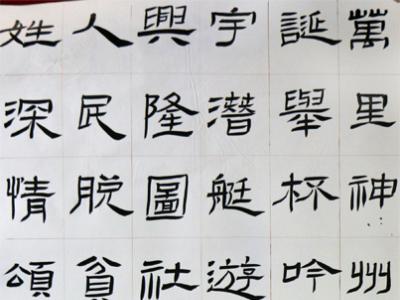 萬里神州
誕舉杯吟
宇潛艇遊
興隆圖社
人民脱貧
姓深情頌